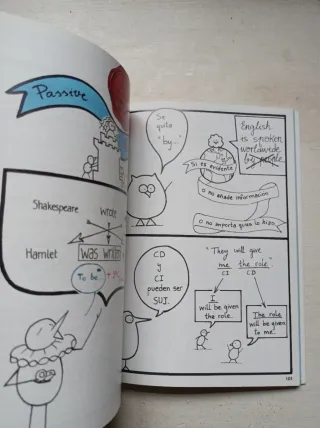 Passive
Shakespeare wrote
Hamlet was written
"To be"
Se
quita
"by..."
English
is spoken
worldwide
by people.
Si es evidente
O no añade información
O no importa quien lo hizo
CD
y
CI
pueden ser
SUJ.
"They will give
me the role."
CI CD
I
will be given
the role.
The role
will be given
to me.